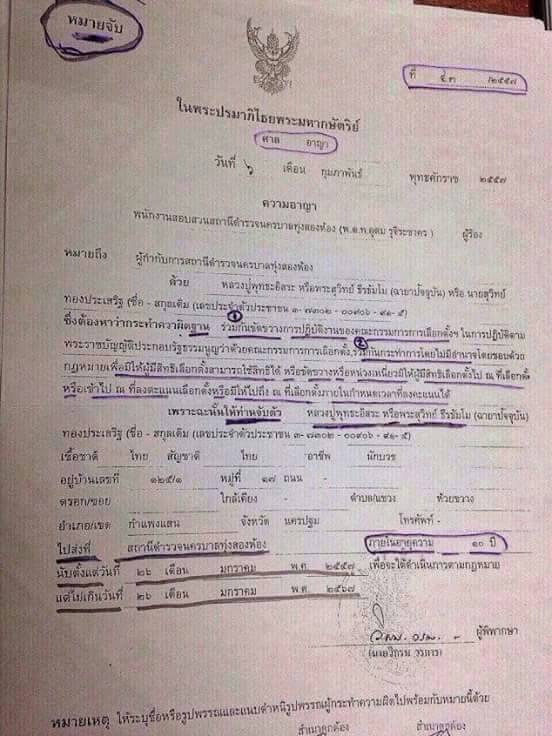 หมายจับ
ที่ ๔๓ /๒๕๕๗
ในพระปรมาภิไธยพระมหากษัตริย์
ศาล อาญา
วันที่ ๖ เดือน กุมภาพันธ์ พุทธศักราช ๒๕๕๗
ความอาญา
พนักงานสอบสวนสถานีตำรวจนครบาลทุ่งสองห้อง (พ.ต.ท.อุดม รุจิระชาคร ) ผู้ร้อง
หมายถึง ผู้กำกับการสถานีตำรวจนครบาลทุ่งสองห้อง
ด้วย หลวงปู่พุทธะอิสระ หรือพระสุวิทย์ ธีรธัมโม (ฉายาปัจจุบัน) หรือ นายสุวิทย์
ทองประเสริฐ (ชื่อ - สกุลเดิม (เลขประจำตัวประชาชน ๓- ๗๓๐๒ - ๐๐๙๐๖ -
ซึ่งต้องหาว่ากระทำความผิดฐาน ๑ ร่วมกันขัดขวางการปฏิบัติงานของคณะกรรมการการเลือกตั้งฯ ในการปฏิบัติตาม
พระราชบัญญัติประกอบรัฐธรรมนูญว่าด้วยคณะกรรมการการเลือกตั้ง, ๒ ร่วมกันกระทำการโดยไม่มีอำนาจโดยชอบด้วย
กฎหมายเพื่อมิให้ผู้มีสิทธิเลือกตั้งสามารถใช้สิทธิได้ หรือขัดขวางหรือหน่วงเหนี่ยวมิให้ผู้มีสิทธิเลือกตั้งไป ณ ที่เลือกตั้ง
หรือเข้าไป ณ ที่ลงคะแนนเลือกตั้งหรือมิให้ไปถึง ณ ที่เลือกตั้งภายในกำหนดเวลาที่ลงคะแนนได้
เพราะฉะนั้นให้ท่านจับตัว หลวงปู่พุทธะอิสระ หรือพระสุวิทย์ ธีรธัมโม (ฉายาปัจจุบัน)
ทองประเสริฐ (ชื่อ - สกุลเดิม (เลขประจำตัวประชาชน ๓- ๗๓๐๒ - ๐๐๙๐๖ -
เชื้อชาติ ไทย สัญชาติ ไทย อาชีพ นักบวช
อยู่บ้านเลขที่ ๑๒๕/๑ หมู่ที่ ๑๗ ถนน -
ตรอก/ซอย ใกล้เคียง - ตำบล/แขวง ห้วยขวาง
อำเภอ/เขต กำแพงแสน จังหวัด นครปฐม โทรศัพท์ -
ไปส่งที่ สถานีตำรวจนครบาลทุ่งสองห้อง ภายในอายุความ ๑๐ ปี
นับตั้งแต่วันที่ ๒๖ เดือน มกราคม พ.ศ. ๒๕๕๗ เพื่อจะได้ดำเนินการตามกฎหมาย
แต่ไม่เกินวันที่ ๒๖ เดือน มกราคม พ.ศ. ๒๕๖๗
ผู้พิพากษา
หมายเหตุ ให้ระบุชื่อหรือรูปพรรณและแนบตำหนิรูปพรรณผู้กระทำความผิดไปพร้อมกับหมายนี้ด้วย
สำเนาถูกต้อง สำเนาถูกต้อง